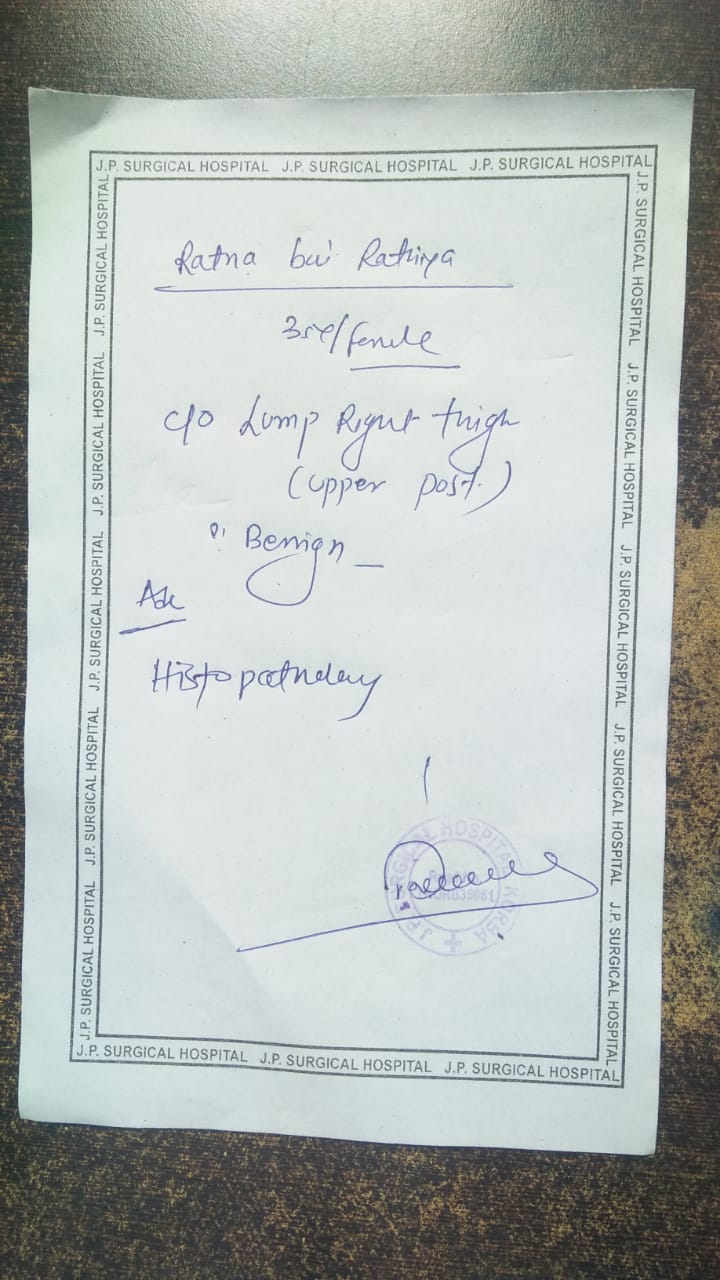 J.P. SURGICAL HOSPITAL J.P. SURGICAL HOSPITAL J.P. SURGICAL HOSPITAL
Ratna bai Rathiya
35y/female
c/o Lump Right thigh
(upper post.)
Benign
Adv
Histopathology
J.P. SURGICAL HOSPITAL KORBA
J.P. SURGICAL HOSPITAL J.P. SURGICAL HOSPITAL J.P. SURGICAL HOSPITAL
J.P. SURGICAL HOSPITAL J.P. SURGICAL HOSPITAL J.P. SURGICAL HOSPITAL J.P. SURGICAL HOSPITAL J.P. SURGICAL HOSPITAL
J.P. SURGICAL HOSPITAL J.P. SURGICAL HOSPITAL J.P. SURGICAL HOSPITAL J.P. SURGICAL HOSPITAL J.P. SURGICAL HOSPITAL